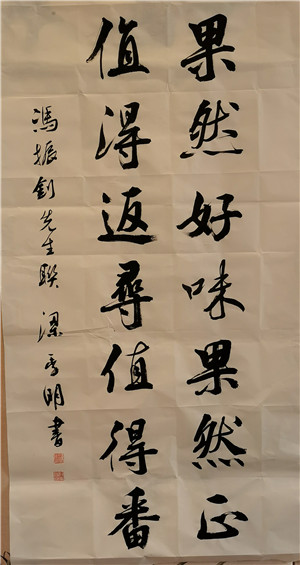 果然好味果然正
值得返尋值得番
馮振釗先生聯 梁秀明書